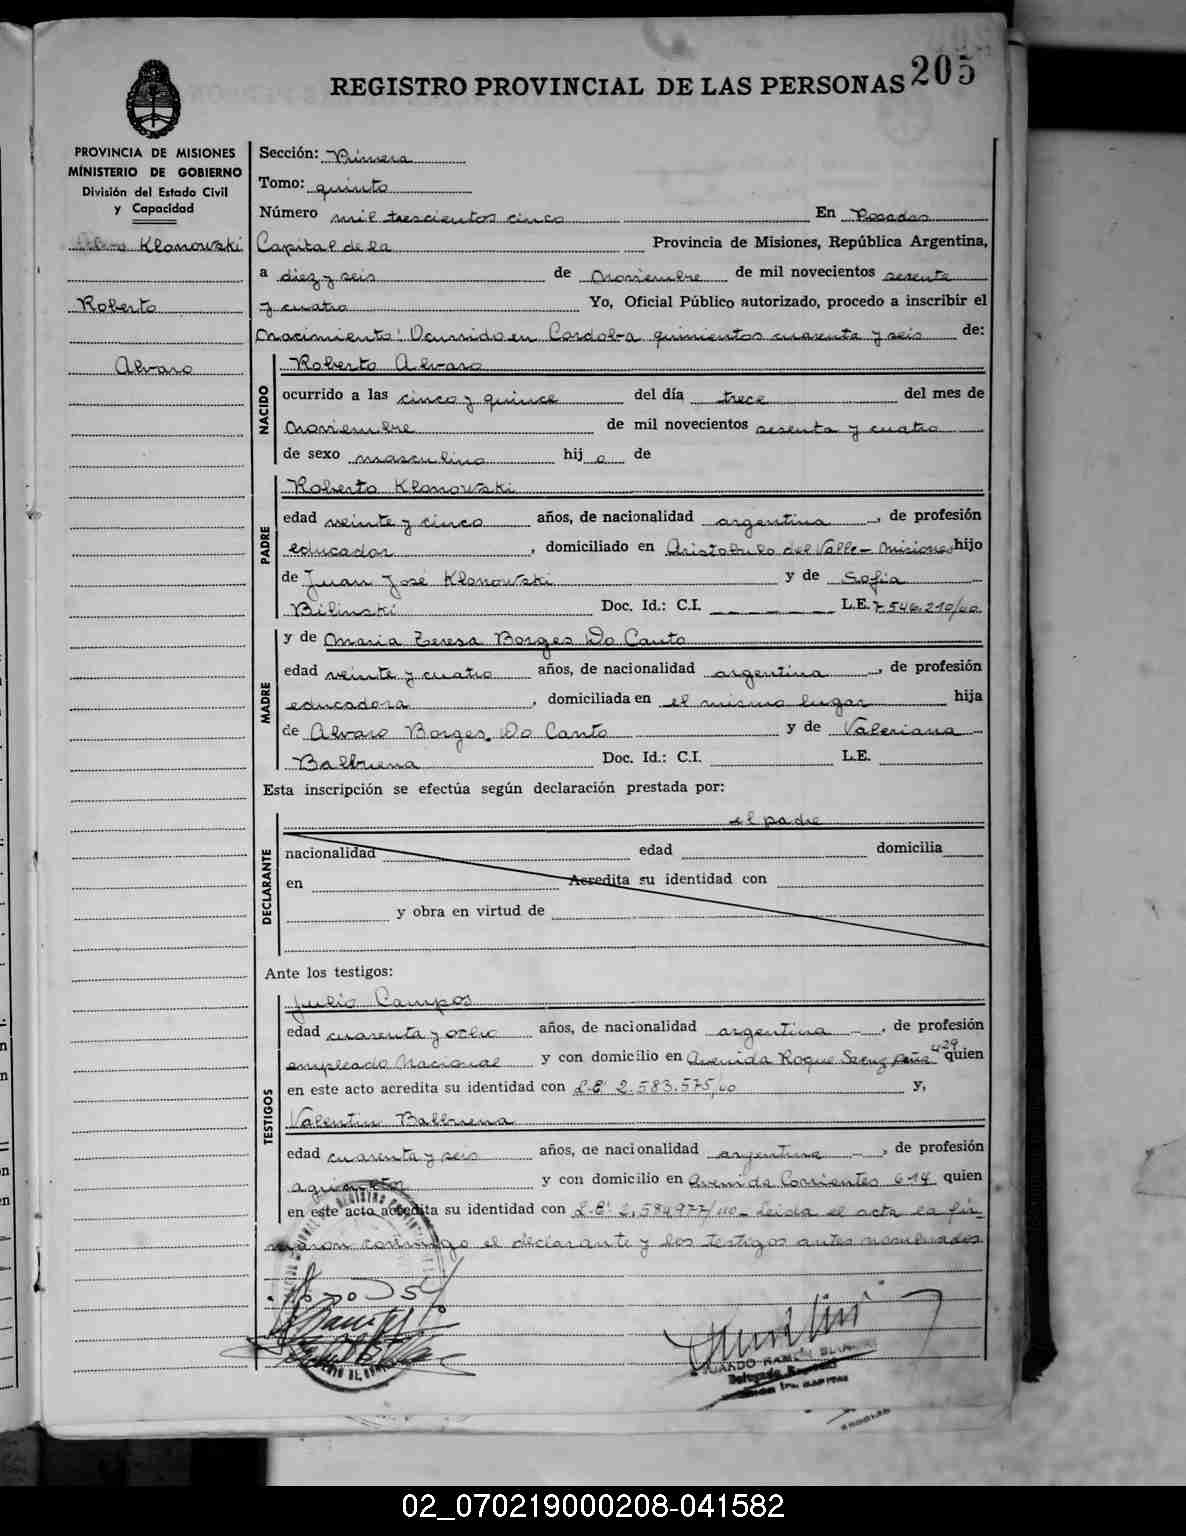 205
REGISTRO PROVINCIAL DE LAS PERSONAS
PROVINCIA DE MISIONES
MINISTERIO DE GOBIERNO
División del Estado Civil
y Capacidad
Klonowski
Roberto
Alvaro
Sección: Primera
Tomo: quinto
Número mil trescientos cinco En Posadas
Capital de la Provincia de Misiones, República Argentina,
a diez y seis de Noviembre de mil novecientos sesenta
y cuatro Yo, Oficial Público autorizado, procedo a inscribir el
Nacimiento: Ocurrido en Cordoba quinientos cuarenta y seis de:
NACIDO
Roberto Alvaro
ocurrido a las cinco y quince del día trece del mes de
Noviembre de mil novecientos sesenta y cuatro
de sexo masculino hijo de
PADRE
Roberto Klonowski
edad veinte y cinco años, de nacionalidad argentina, de profesión
educador, domiciliado en Aristobulo del Valle - Misiones hijo
de Juan José Klonowski y de Sofia
Bilinski Doc. Id.: C.I. L.E. 7.546.210/00
MADRE
y de Maria Teresa Borges Do Canto
edad veinte y cuatro años, de nacionalidad argentina, de profesión
educadora, domiciliada en el mismo lugar hija
de Alvaro Borges Do Canto y de Valeriana
Balbuena Doc. Id.: C.I. L.E.
Esta inscripción se efectúa según declaración prestada por:
DECLARANTE
el padre
nacionalidad edad domicilia
en Acredita su identidad con
y obra en virtud de
Ante los testigos:
TESTIGOS
Julio Campos
edad cuarenta y ocho años, de nacionalidad argentina -, de profesión
empleado Nacional y con domicilio en Avenida Roque Saenz Peña 429 quien
en este acto acredita su identidad con L.E: 2.583.575/00 y,
Valentin Balbuena
edad cuarenta y seis años, de nacionalidad argentina -, de profesión
y con domicilio en Avenida Corrientes 614 quien
en este acto acredita su identidad con L.E: 2.584977/00 - Leida el acta la fir-
maron conmigo el declarante y los testigos antes nombrados
02_070219000208-041582